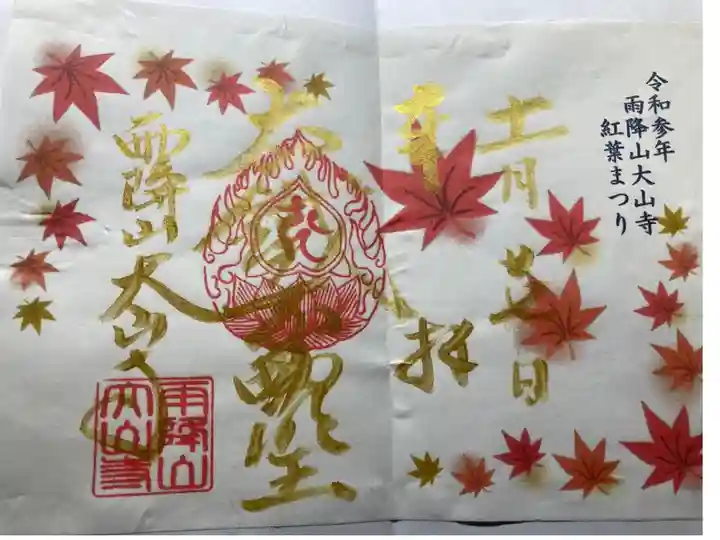 令和参年
雨降山大山寺
紅葉まつり
十一月
日
奉拝
雨降山大山寺
雨降山
大山寺